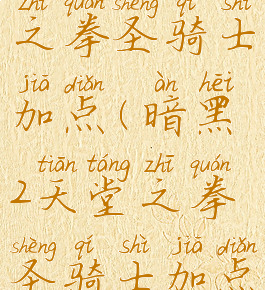 zhī quán shèng qí shì
之拳圣骑士
jiā diǎn àn hēi
加点(暗黑
tiān táng zhī quán
2天堂之拳
shèng qí shì jiā diǎn
圣骑士加点